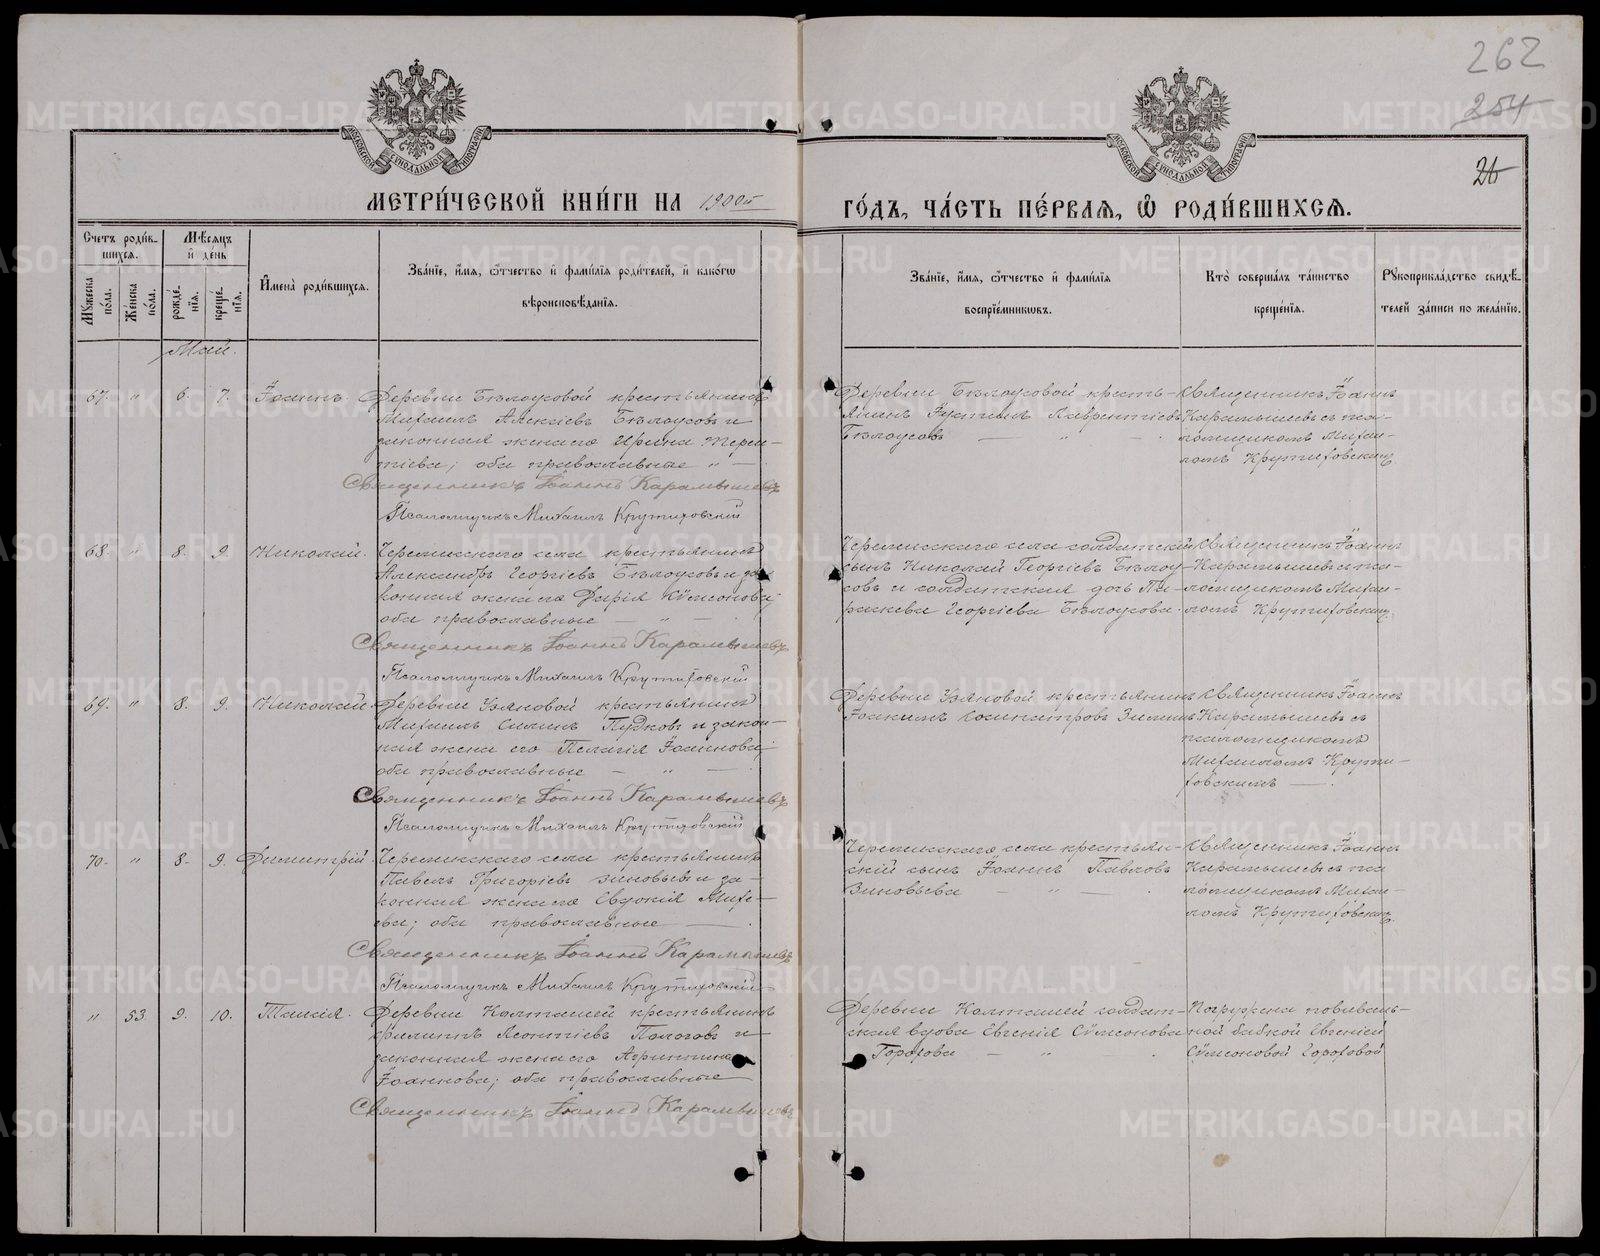 262
254
26
МОСКОВСКОЙ СѴНОДАЛЬНОЙ ТИПОГРАФІИ
МОСКОВСКОЙ СѴНОДАЛЬНОЙ ТИПОГРАФІИ
МЕТРИ́ЧЕСКОЙ КНИ́ГИ НА 1900й
ГО́ДЪ, ЧА́СТЬ ПЕ́РВАЯ, Ѡ РОДИ́ВШИХСЯ.
Счетъ роди́вшихся.
Мѣсяцъ и́ де́нь
Мꙋжеска по́ла.
Же́нска по́ла.
рожде́нїѧ.
креще́нїѧ.
И́мена̀ роди́вшихся.
Зва́нїе, и́мя, ѻ҆́тчество и҆ фами́лїя роди́телей, и҆ како́гѡ
вѣроисповѣ́данїя.
Зва́нїе, и́мя, ѻ҆́тчество и҆ фами́лїя
воспрїе́мникѡвъ.
Кто̀ соверша́лъ та́инство
креще́нїя.
Рꙋкоприкла́дство свидѣ́-
телей за́писи по жела́нїю.
Май.
67. " 6. 7. Іоаннъ.
Деревни Бѣлоусовой крестьянинъ
Михаилъ Алексіевъ Бѣлоусовъ и
законная жена его Ирина Терен-
тіева; оба православные "
Священникъ Іоаннъ Карамышевъ
Псаломщикъ Михаилъ Крутиховскій
Деревни Бѣлоусовой кресть-
янинъ Лаврентіевъ
Бѣлоусовъ "
Священникъ Іоаннъ
Карамышевъ съ пса-
ломщикомъ Михаи-
ломъ Крутиховскимъ
68. " 8. 9. Николай.
Черемисскаго села крестьянинъ
Александръ Георгіевъ Бѣлоусовъ и за-
конная жена его Дарія Сѵмеонова;
оба православные "
Священникъ Іоаннъ Карамышевъ
Псаломщикъ Михаилъ Крутиховскій
Черемисскаго села солдатскій
сынъ Николай Георгіевъ Бѣлоу-
совъ и солдатская дочь Па-
раскева Георгіева Бѣлоусова.
Священникъ Іоаннъ
Карамышевъ съ пса-
ломщикомъ Михаи-
ломъ Крутиховскимъ.
69. " 8. 9. Николай.
Деревни Узяновой крестьянинъ
Михаилъ Силинъ и закон-
ная жена его Пелагія Іоаннова;
оба православные "
Священникъ Іоаннъ Карамышевъ
Псаломщикъ Михаилъ Крутиховскій
Деревни Узяновой крестьянинъ
Іоакимъ Сосипатровъ
Священникъ Іоаннъ
Карамышевъ съ
псаломщикомъ
Михаиломъ Крути-
ховскимъ
70. " 8. 9. Димитрій.
Черемисскаго села крестьянинъ
Павелъ Григоріевъ Зиновьевъ и за-
конная жена его Евдокія
оба православные
Священникъ Іоаннъ Карамышевъ
Псаломщикъ Михаилъ Крутиховскій
Черемисскаго села крестьян-
скій сынъ Іоаннъ Павловъ
Зиновьева "
Священникъ Іоаннъ
Карамышевъ съ пса-
ломщикомъ Михаи-
ломъ Крутиховскимъ.
" 53. 9. 10. Таисія.
Деревни Колташей крестьянинъ
Филиппъ Леонтіевъ и
законная жена его Агриппина
Іоаннова; оба православные
Священникъ Іоаннъ Карамышевъ
Деревни Колташей солдат-
ская вдова Евгенія Сѵмеонова
Горохова "
Погружена повиваль-
ной бабкой Евгеніей
Сѵмеоновой Гороховой
METRIKI.GASO-URAL.RU